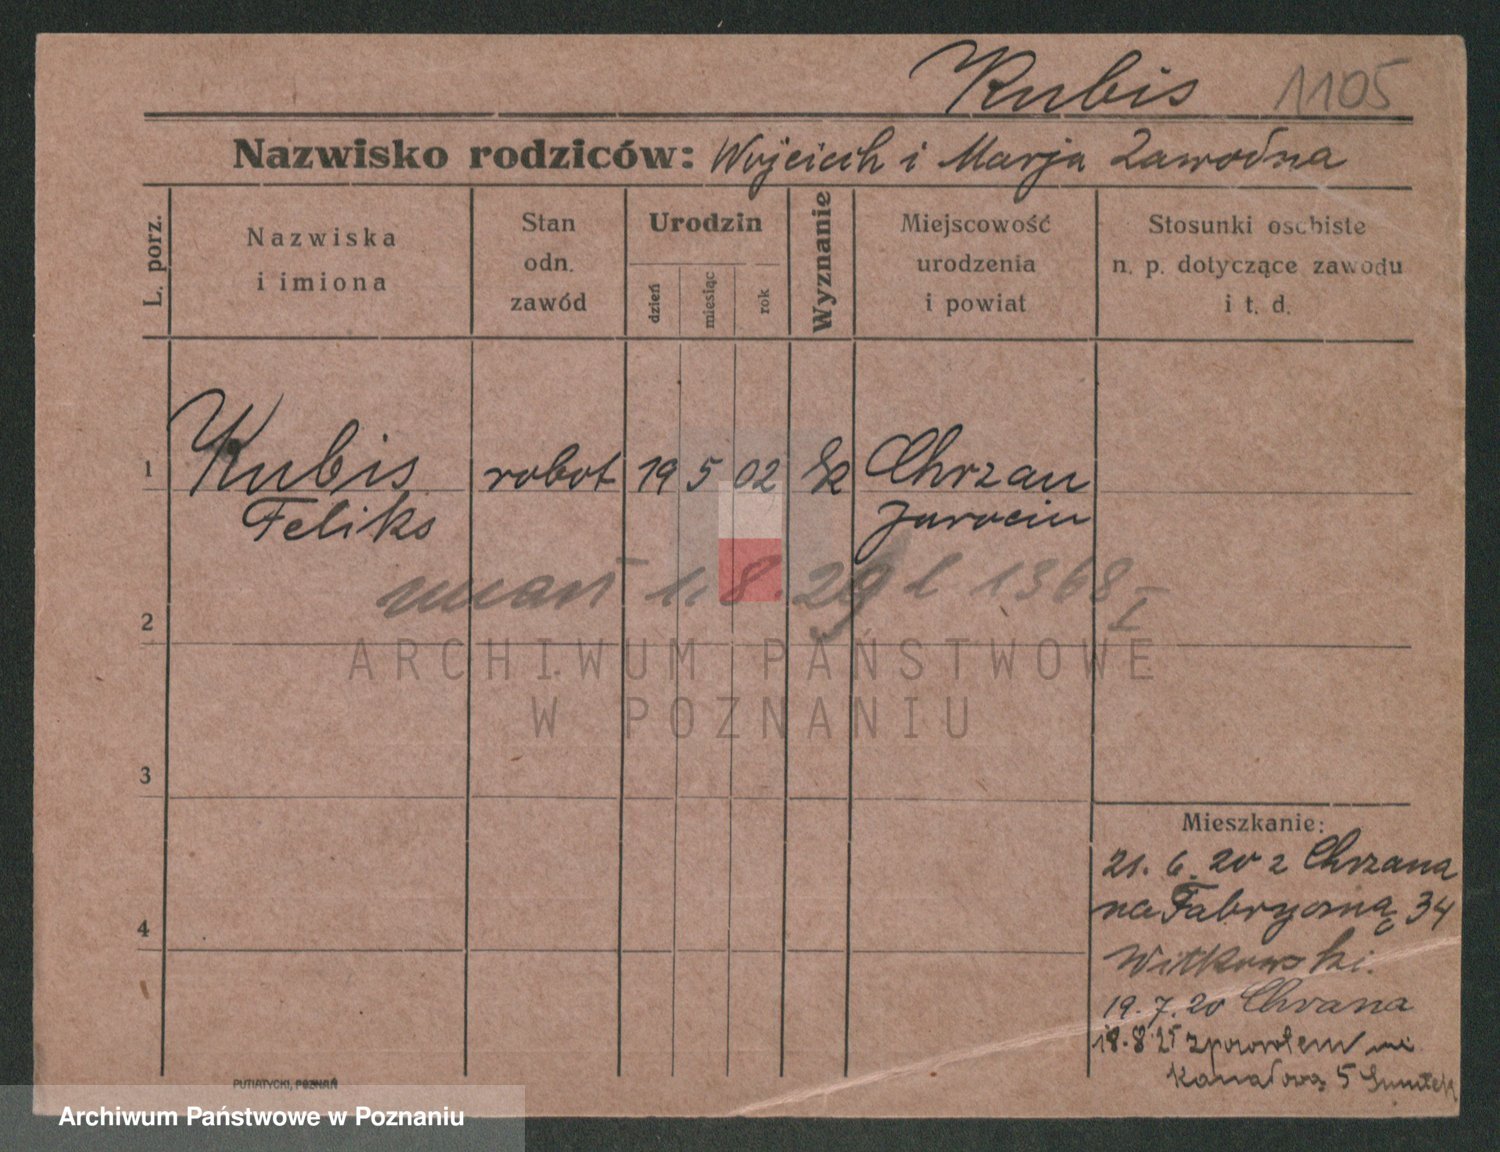 Kubis 1105
Nazwisko rodziców: Wojciech i Marja Zawodna
L. porz.
Nazwiska
i imiona
Stan
odn.
zawód
Urodzin
dzień
miesiąc
rok
Wyznanie
Miejscowość
urodzenia
i powiat
Stosunki osobiste
n. p. dotyczące zawodu
i t. d.
1 Kubis robot 19 5 02 Chrzan
Feliks Jarocin
1.8.29 1368 I
2
ARCHIWUM PAŃSTWOWE
W POZNANIU
3
Mieszkanie:
21. 6. 20 z Chrzana
na Fabryczną 34
4
Witkowski.
19. 7. 20 Chrzana
18.8.25 z powrotem
Kanałową 5
PUTIATYCKI, POZNAŃ
Archiwum Państwowe w Poznaniu